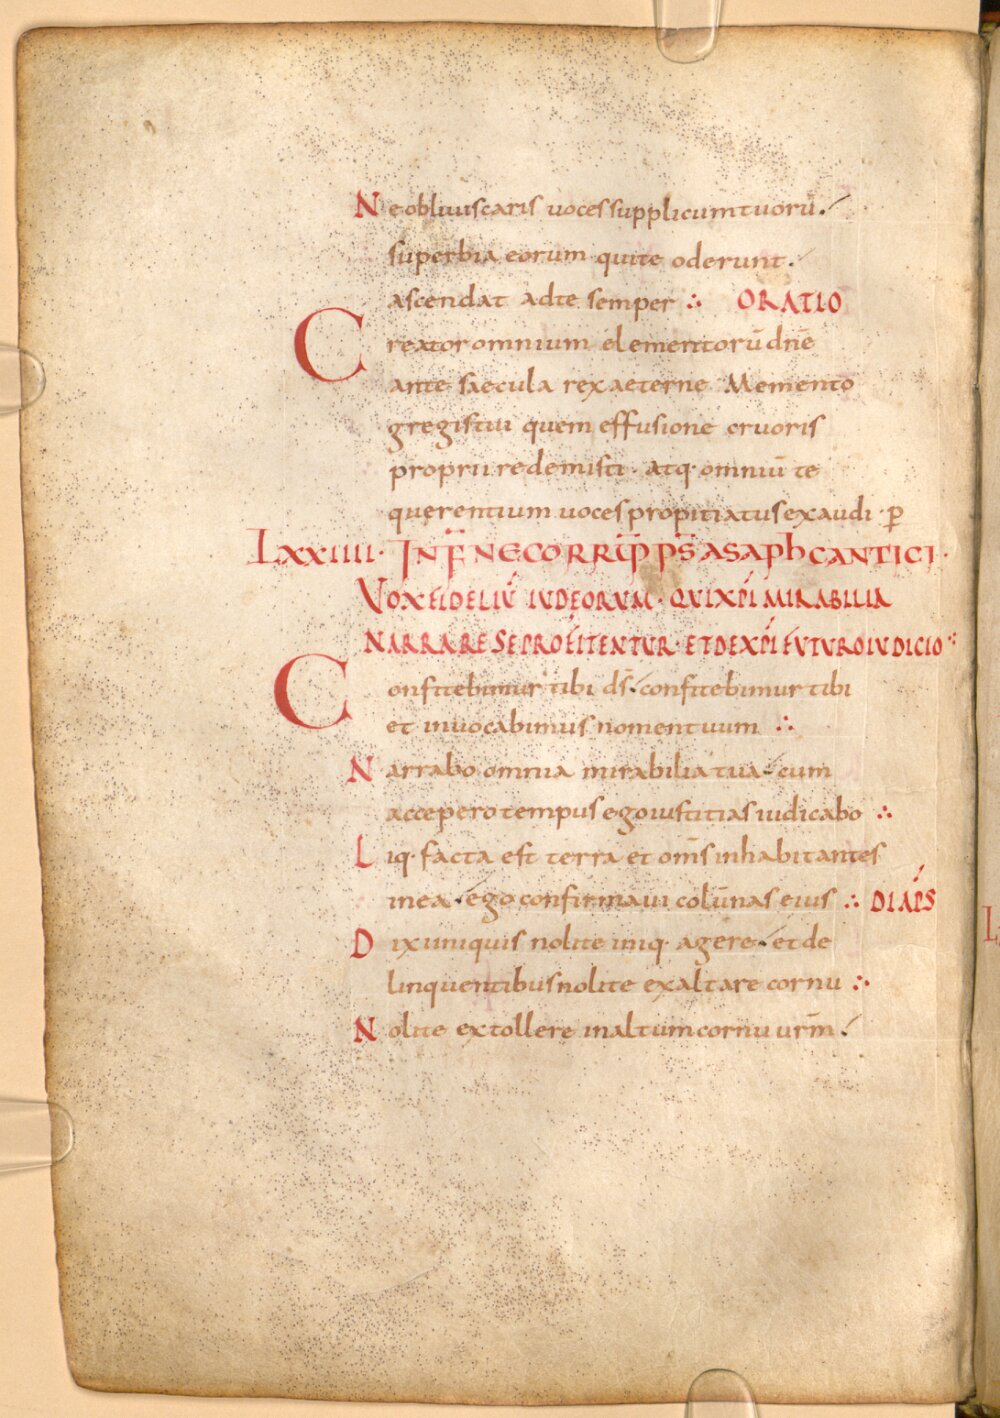 Ne obliuiscaris uoces supplicum tuorū.
superbia eorum qui te oderunt.
ascendat ad te semper ∴ ORATIO
Creator omnium elementorū dn̄e
ante saecula rex aeterne Memento
gregis tui quem effusione cruoris
proprii redemisti · atq· omniū te
querentium uoces propitiatus exaudi · p̲
Lxxiiii · IN F̄ NE CORRŪP PS̄ ASAPH CANTICI ·
VOX FIDELIŪ IUDEORUM · QUI XP̄I MIRABILIA
NARRARE SE PROFITENTUR · ET DE XP̄I FUTURO IUDICIO ∵
Confitebimur tibi ds̄. confitebimur tibi
et inuocabimus nomen tuum ∴
Narrabo omnia mirabilia tua. cum
accepero tempus ego iustitias iudicabo ∴
Liq· facta est terra et om̄s inhabitantes
in ea. ego confirmaui colūnas eius ∴ DIAPS̄
Dixi iniquis nolite iniq· agere. et de
linquentibus nolite exaltare cornu ∴
Nolite extollere in altum cornu urm̄.